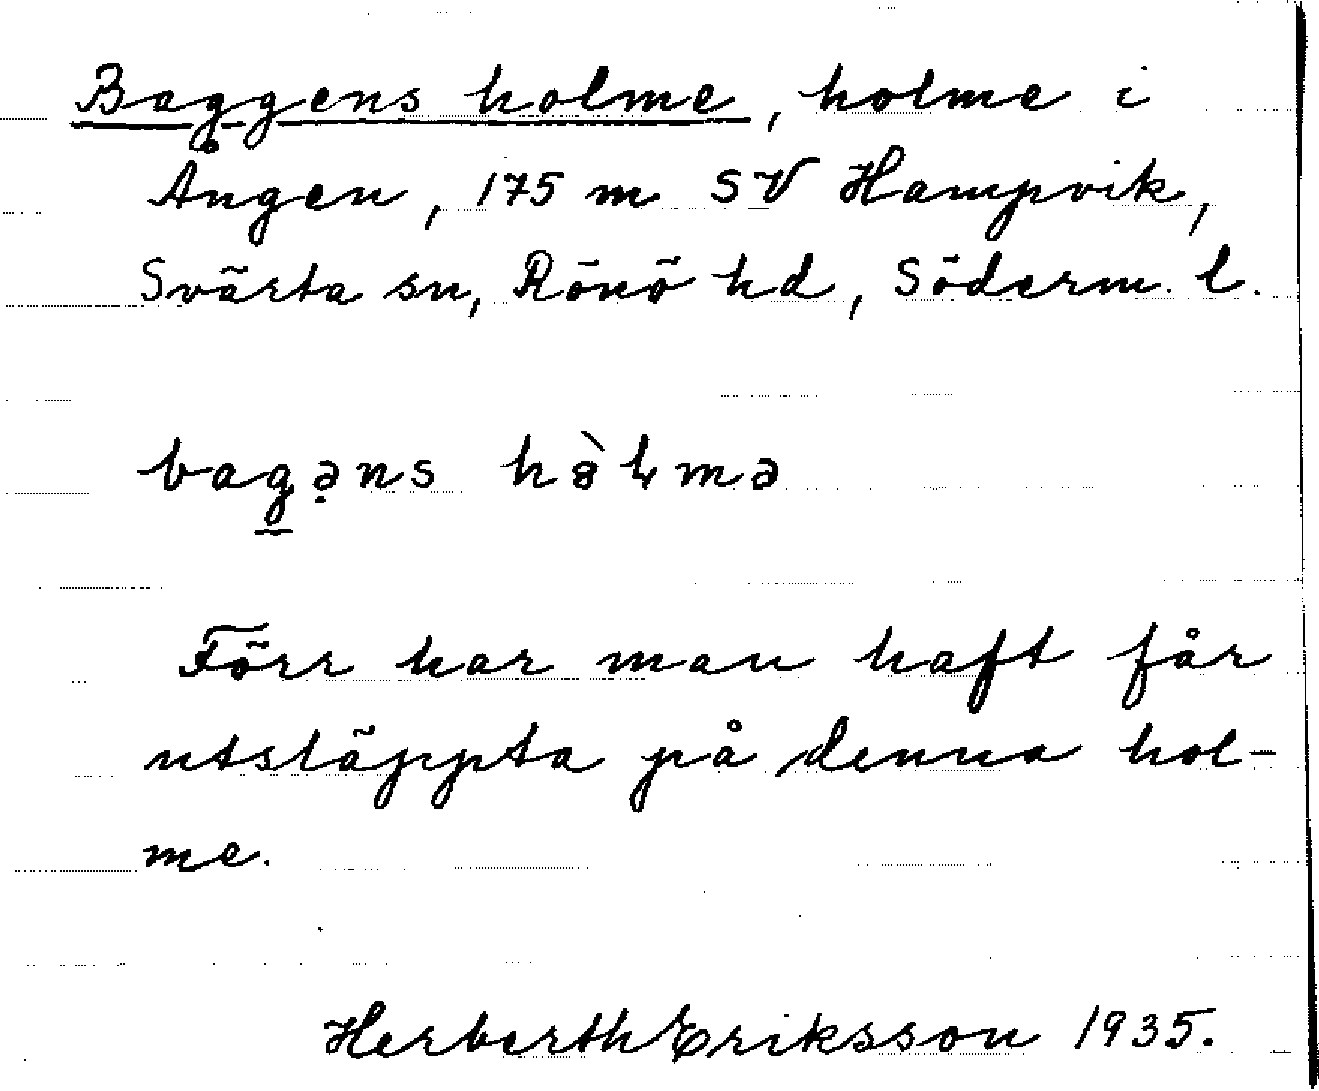 Baggens holme, holme i
Ången, 175 m SV Hampvik,
Svärta sn, Rönö hd, Söderm. l.
bag̲ə̣ns hȍ̀ɫmə
Förr har man haft får
utsläppta på denna hol-
me.
Herberth Eriksson 1935.